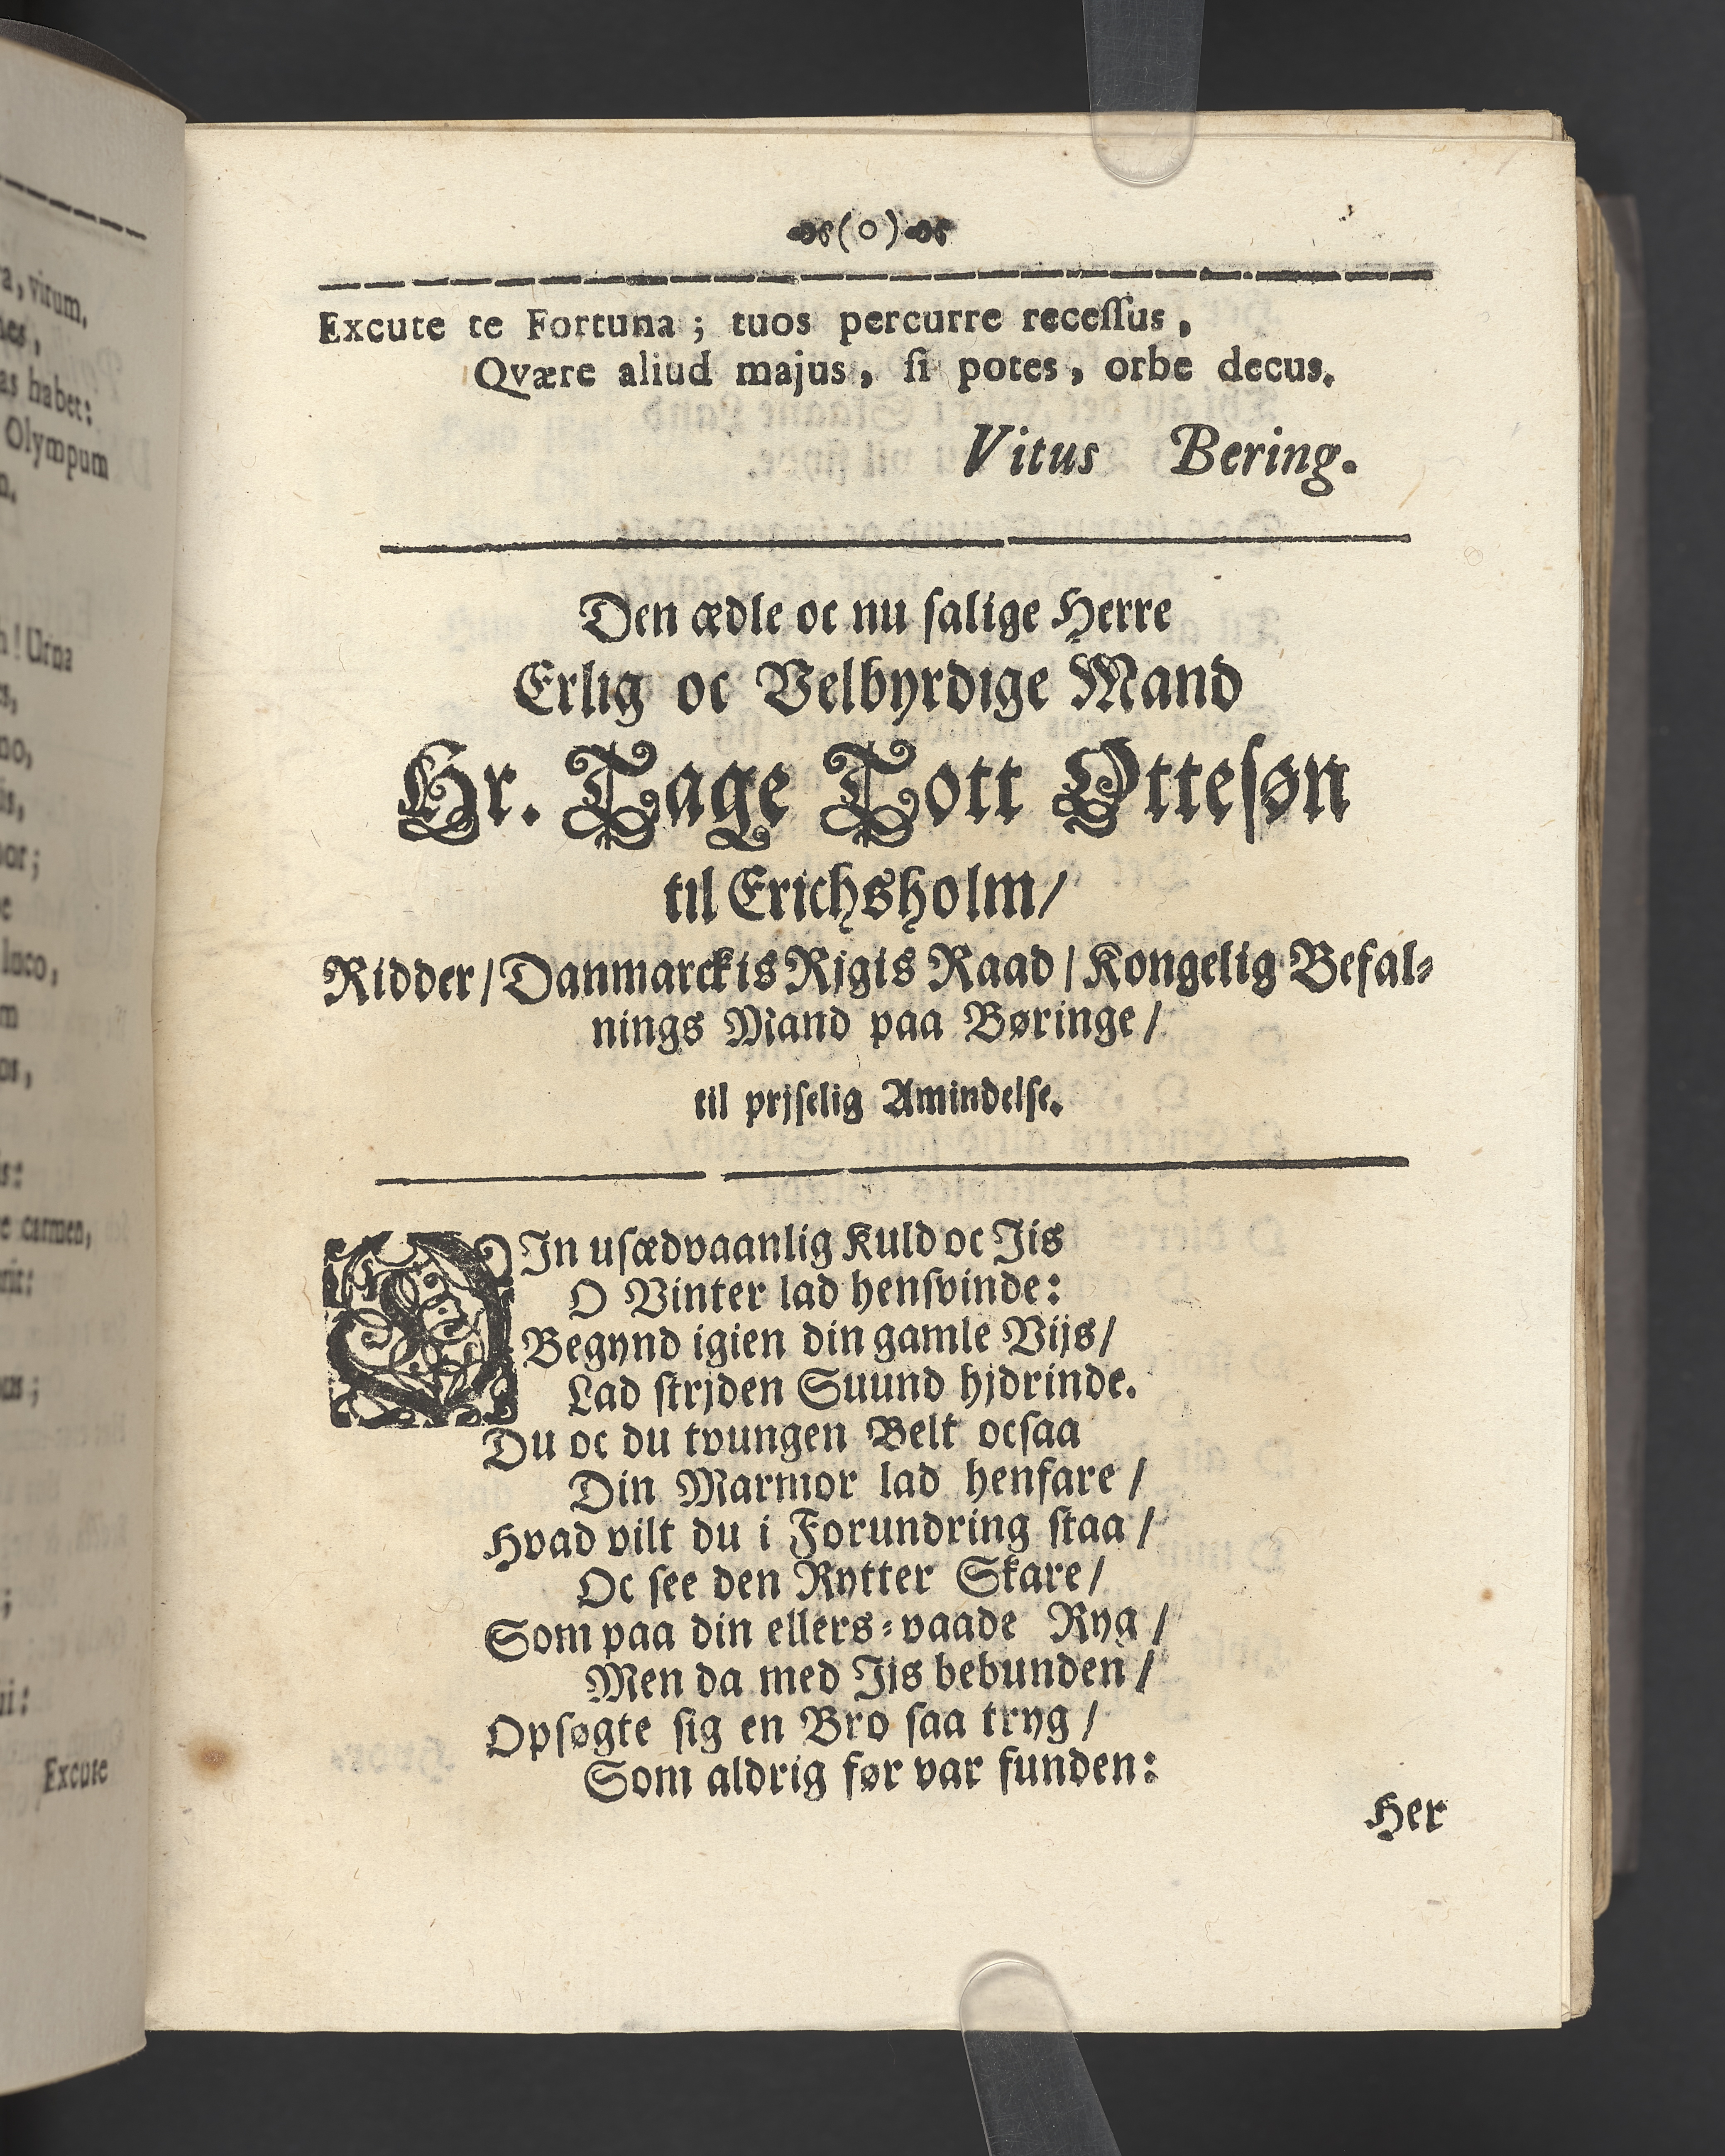 a, virum.
nes,
as habet:
Olympum
n.
n! Urna
s,
no,
is,
oor;
e
luco,
m
os,
is:
e carmen,
rit:
us;
;
ui:
Excute
(o)
Excute te Fortuna; tuos percurre recessus,
Qvære aliud majus, si potes, orbe decus.
Vitus Bering.
Den ædle oc nu salige Herre
Erlig oc Velbyrdige Mand
Hr. Tage Tott Ottesøn
til Erichsholm/
Ridder/ Danmarckis Rjgis Raad/ Kongelig Befal-
nings Mand paa Børinge/
til prjselig Amindelse.
DIn usædvaanlig Kuld oc Jis
O Vinter lad hensvinde:
Begynd igien din gamle Vijs/
Lad strjden Suund hjdrinde.
Du oc du tvungen Belt ocsaa
Din Marmor lad henfare/
Hvad vilt du i Forundring staa/
Oc see den Rytter Skare/
Som paa din ellers-vaade Ryg/
Men da med Jis bebunden/
Opsøgte sig en Bro saa tryg/
Som aldrig før var funden:
Her